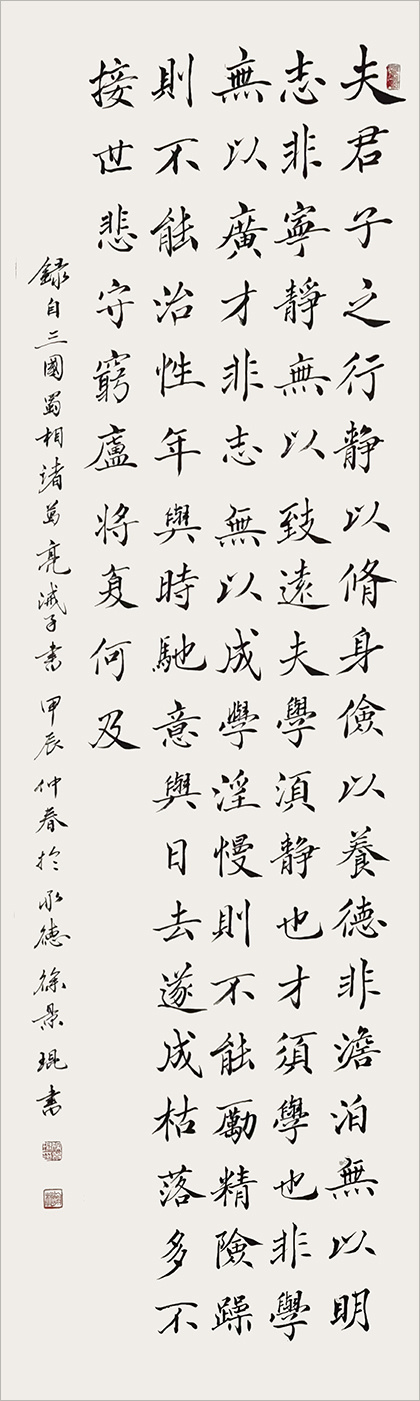 夫君子之行靜以脩身儉以養德非澹泊無以明
志非寧靜無以致遠夫學須静也才須學也非學
無以廣才非志無以成學淫慢則不能勵精險躁
則不能治性年與時馳意與日去遂成枯落多不
接世悲守窮廬將复何及
錄自三國蜀相诸葛亮诫子書 甲辰仲春於承德 徐景琨書